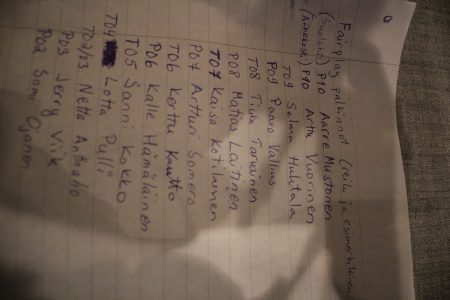 Fairplay palkinnot (reilu ja esimerkillinen
(Suulasi) P10 Aarre Mustonen
(Annukka) P10 Arttu Vuorinen
T09 Selma Huhtala
P09 Paavo Vallius
T08 Tiuku Tarvainen
P08 Matias Laitinen
T07 Kaisa Kotilainen
P07 Artturi Somero
T06 Kerttu Kautto
P06 Kalle Hämäläinen
T05 Sanni Kokko
T04 Lotta Pulli
T02/03 Netta Anttnaho
P03 Jerry Viik
P02 Sami Ojanen